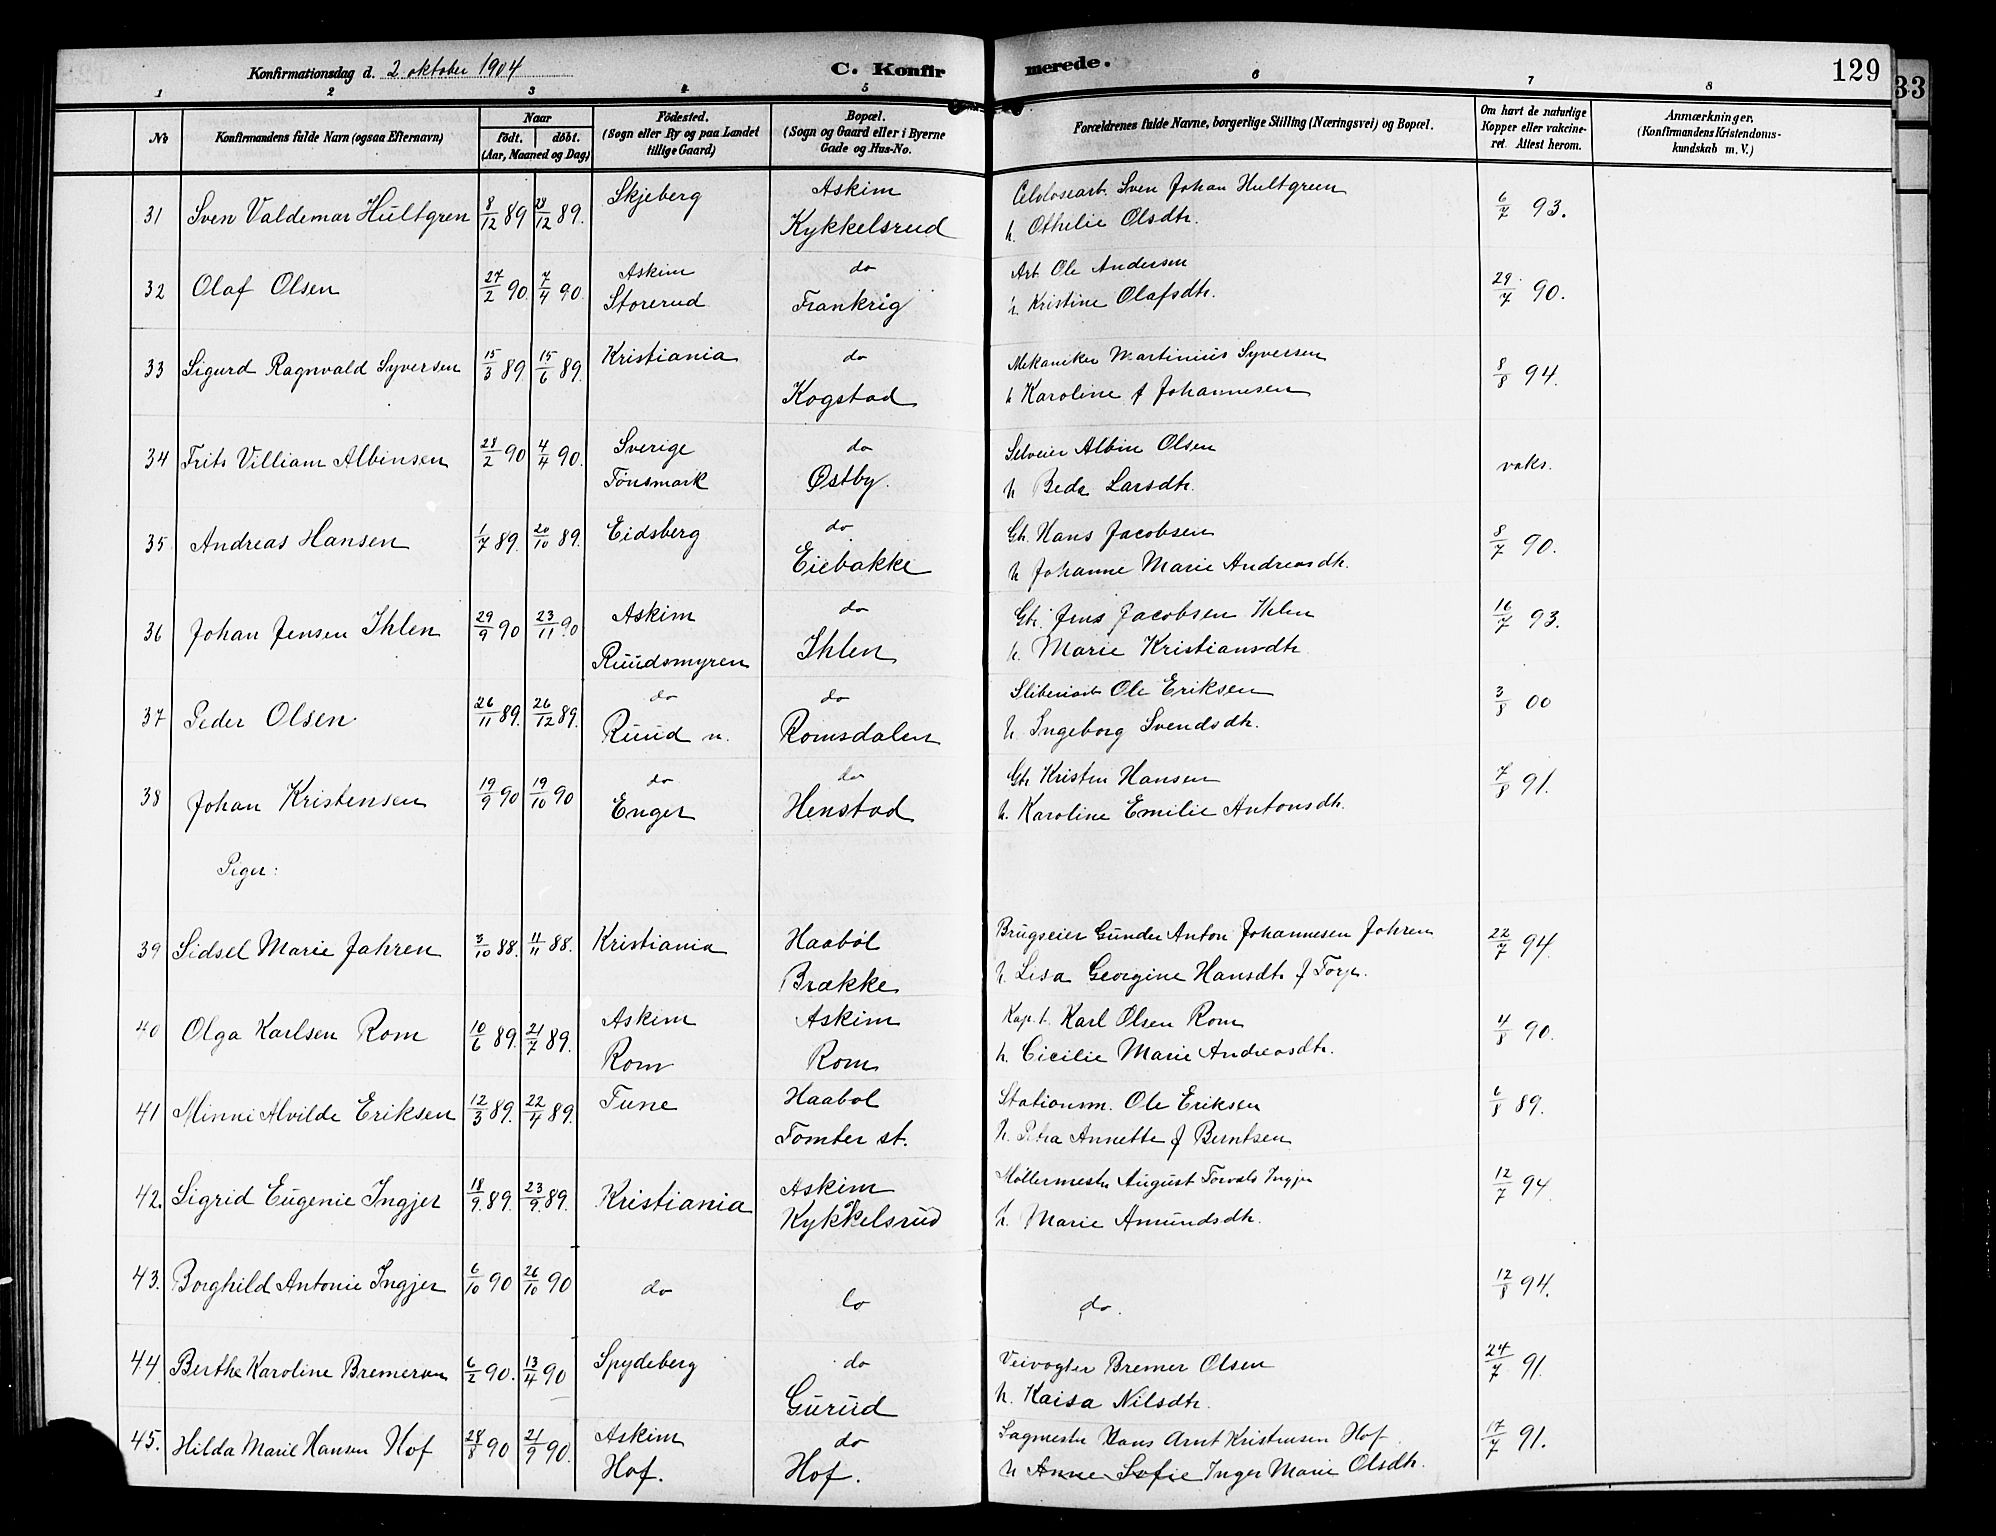 Konfirmationsdag d. 2 oktober 1904
C. Konfirmerede.
129
33
1 2 3 4 5 6 7 8
No
Konfirmandens fulde Navn (ogsaa Efternavn)
Naar
født. døbt.
(Aar, Maaned og Dag)
Fødested.
(Sogn eller By og paa Landet
tillige Gaard)
Bopæl.
(Sogn og Gaard eller i Byerne
Gade og Hus-No.
Forældrenes fulde Navne, borgerlige Stilling (Næringsvei) og Bopæl.
Om havt de naturlige
Kopper eller vakcine-
ret. Attest herom.
Anmærkninger.
(Konfirmandens Kristendoms-
kundskab m. V.)
31 Sven Valdemar Hultgren 8/12 89 28/12 89. Skjeberg Askim Celulosearb. Sven Johan Hultgreen 6/7 93.
Kykkelsrud h. Othelie Olsdtr.
32 Olaf Olsen 27/2 90. 7/4 90. Askim do Arb. Ole Andersen 29/7 90.
Storerud Frankrig h Kristine Olafsdtr.
33 Sigurd Ragnvald Syversen 15/3 89. 15/6 89. Kristiania do Mekaniker Martinius Syversen 8/8 94.
Kogstad h Karoline f Johannesen
34 Frits Villiam Albinsen 28/2 90 4/4 90. Sverige do Selveier Albin Olsen vaks.
Tönsmark Østby. h Beda Larsdtr.
35 Andreas Hansen 1/7 89. 20/10 89. Eidsberg do Gb. Hans Jacobsen 8/7 90.
Eiebakke h Johanne Marie Andreasdtr.
36 Johan Jensen Ihlen 29/9 90 23/11 90 Askim do Gb. Jens Jacobsen Ihlen 16/7 93.
Ruudsmyren Ihlen h. Marie Kristiansdtr
37 Peder Olsen 26/11 89. 26/12 89. do do Sliberiarb Ole Eriksen 3/8 00
Ruud n. Romsdalen h. Ingeborg Svendsdtr.
38 Johan Kristensen 19/9 90 19/10 90 do do Gb Kristen Hansen 7/8 91.
Enger Henstad h. Karoline Emilie Antonsdtr.
Piger:
39 Sidsel Marie Jahren 3/10 88. 11/11 88. Kristiania Haaböl Brugseier Gunder Anton Johannesen Jahren 22/7 94.
Brække h. Lesa Georgine Hansdtr f Torp.
40 Olga Karlsen Rom 10/6 89. 21/7 89. Askim Askim Kap. l. Karl Olsen Rom 4/8 90.
Rom Rom h. Cicilie Marie Andreasdtr.
41 Minni Alvilde Eriksen 12/3 89. 22/4 89. Tune Haabøl Stationsm. Ole Eriksen 6/8 89.
Tomter st. h. Petra Annette f Berntsen
42. Sigrid Eugenie Ingjer 18/9. 89. 23/9. 89. Kristiania Askim Möllermester August Torvals Ingjer 12/7 94.
Kykkelsrud h. Marie Amundsdtr.
43. Borghild Antonie Ingjer 6/10 90 26/10 90 do do do. 12/8 94.
44 Berthe Karoline Bremersen 6/2 90. 13/4 90 Spydeberg do Veivogter Bremer Olsen 24/7 91.
Gurud h. Kaisa Nilsdtr.
45. Hilda Marie Hansen Hof 28/8 90 21/9 90. Askim do Sagmester Hans Arnt Kristensen Hof 17/7 91.
Hof. Hof. h Anne Sofie Inger Marie Olsdtr.